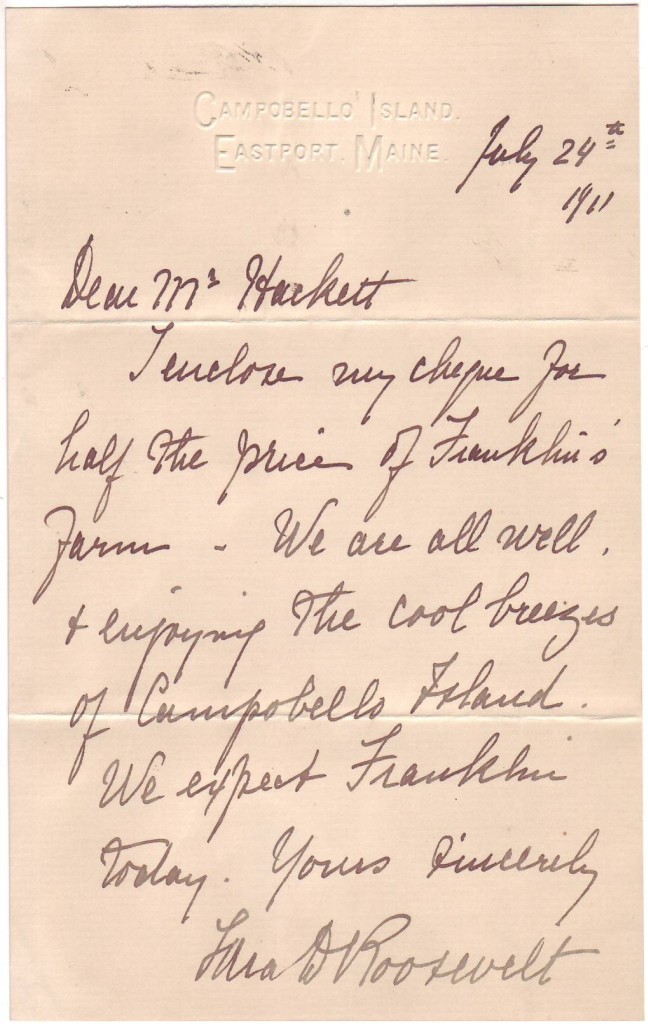 CAMPOBELLO ISLAND.
EASTPORT. MAINE.
July 24th
1911
Dear Mr Hackett
I enclose my cheque for
half the price of Franklin's
farm - We are all well,
& enjoying the cool breezes
of Campobello Island.
We expect Franklin
today. Yours sincerely
Sara D Roosevelt